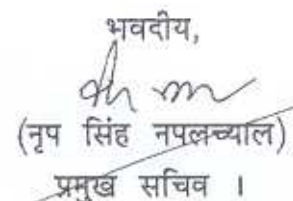 भवदीय,
(नृप सिंह नपलच्याल)
प्रमुख सचिव ।